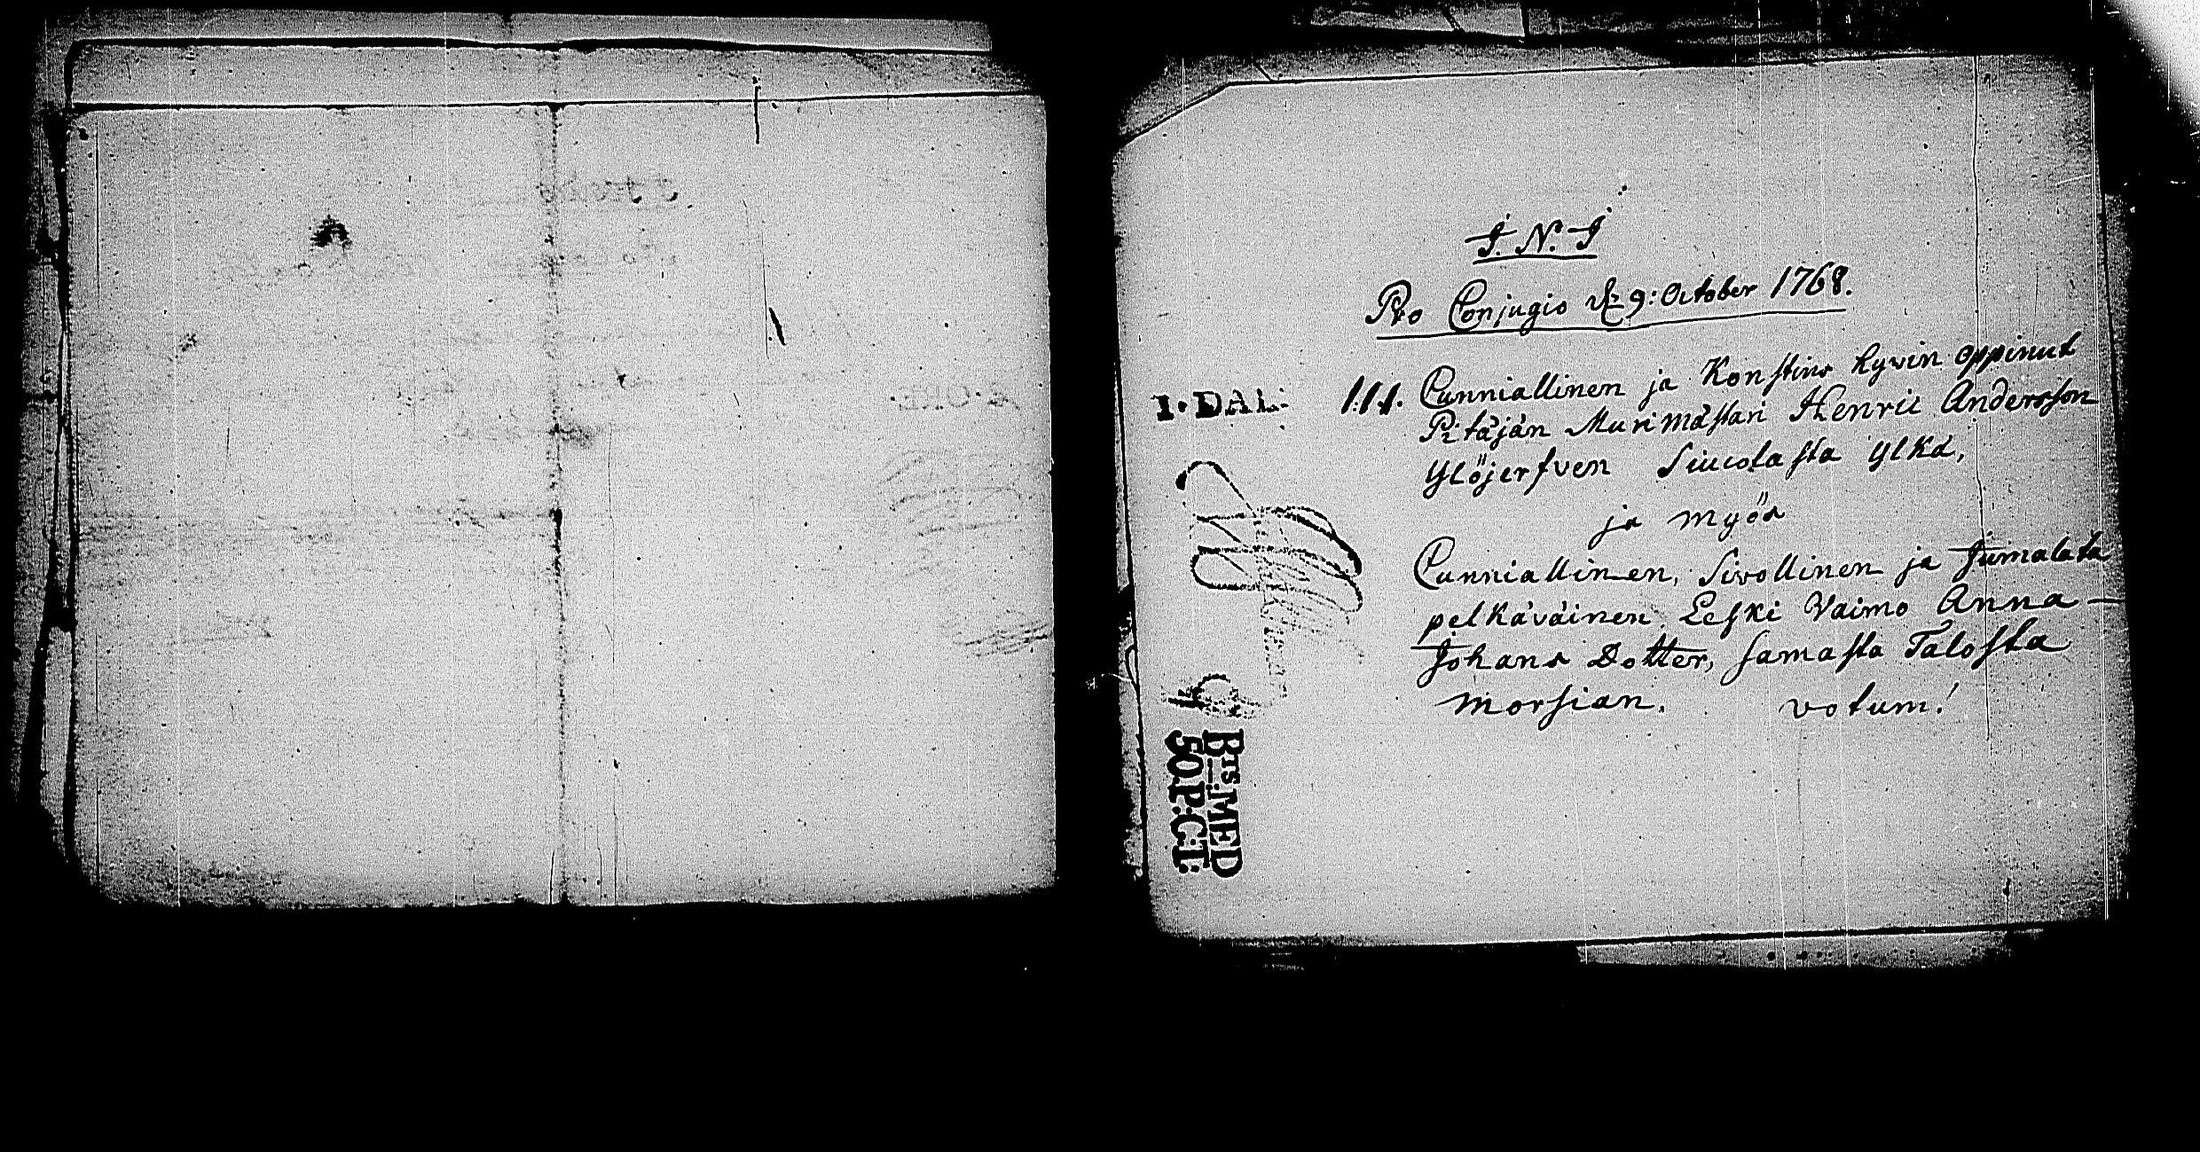 J. N. J
Pro Conjugio d. 9: October 1768.
1. DAL:
1.1.1. Cunniallinen ja Konstins hyvin oppinut
Pitäjän Murimästari Henric Andersson
Ylöjerfven Siucolasta ylkä,
ja myös
Cunniallinen, Sivollinen ja Jumalata
pelkäväinen Leski Vaimo Anna -
Johans Dotter, samasta Talosta
morsian. votum!
BTS. MED
50. P:C:T: